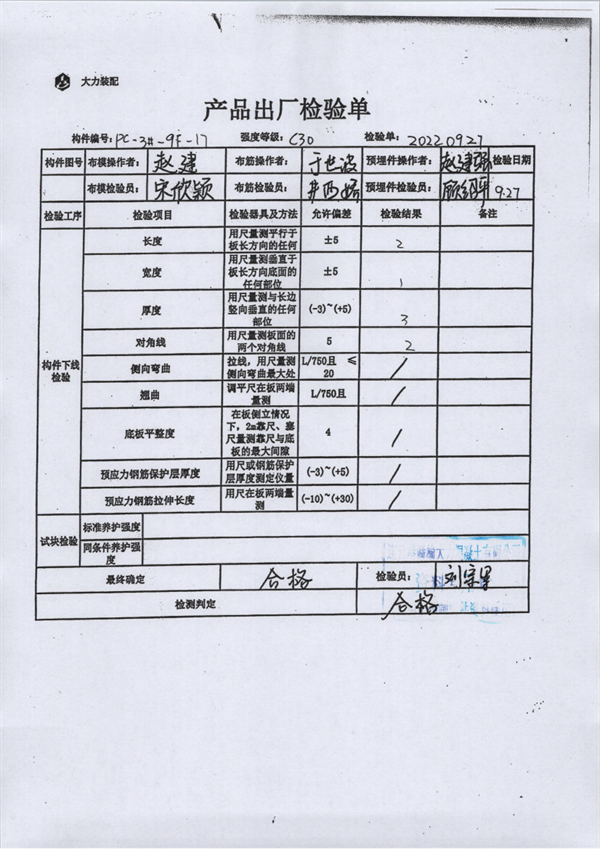 大力装配
产品出厂检验单
构件编号: PC-3#-9F-17 强度等级: C30 检验单: 20220927
构件图号 布模操作者: 赵建 布筋操作者: 于世波 预埋件操作者: 检验日期
布模检验员: 宋欣颖 布筋检验员: 预埋件检验员: 9.27
检验工序 检验项目 检验器具及方法 允许偏差 检验结果 备注
构件下线检验
长度 用尺量测平行于板长方向的任何 ±5 2
宽度 用尺量测垂直于板长方向底面的任何部位 ±5 1
厚度 用尺量测与长边竖向垂直的任何部位 (-3)~(+5) 3
对角线 用尺量测板面的两个对角线 5 2
侧向弯曲 拉线，用尺量测侧向弯曲最大处 L/750且 ≤20 /
翘曲 调平尺在板两端量测 L/750且 /
底板平整度 在板侧立情况下，2m靠尺、塞尺量测靠尺与底板的最大间隙 4 /
预应力钢筋保护层厚度 用尺或钢筋保护层厚度测定仪量 (-3)~(+5) /
预应力钢筋拉伸长度 用尺在板两端量测 (-10)~(+30) /
试块检验 标准养护强度
同条件养护强度
最终确定 合格 检验员:
检测判定 合格